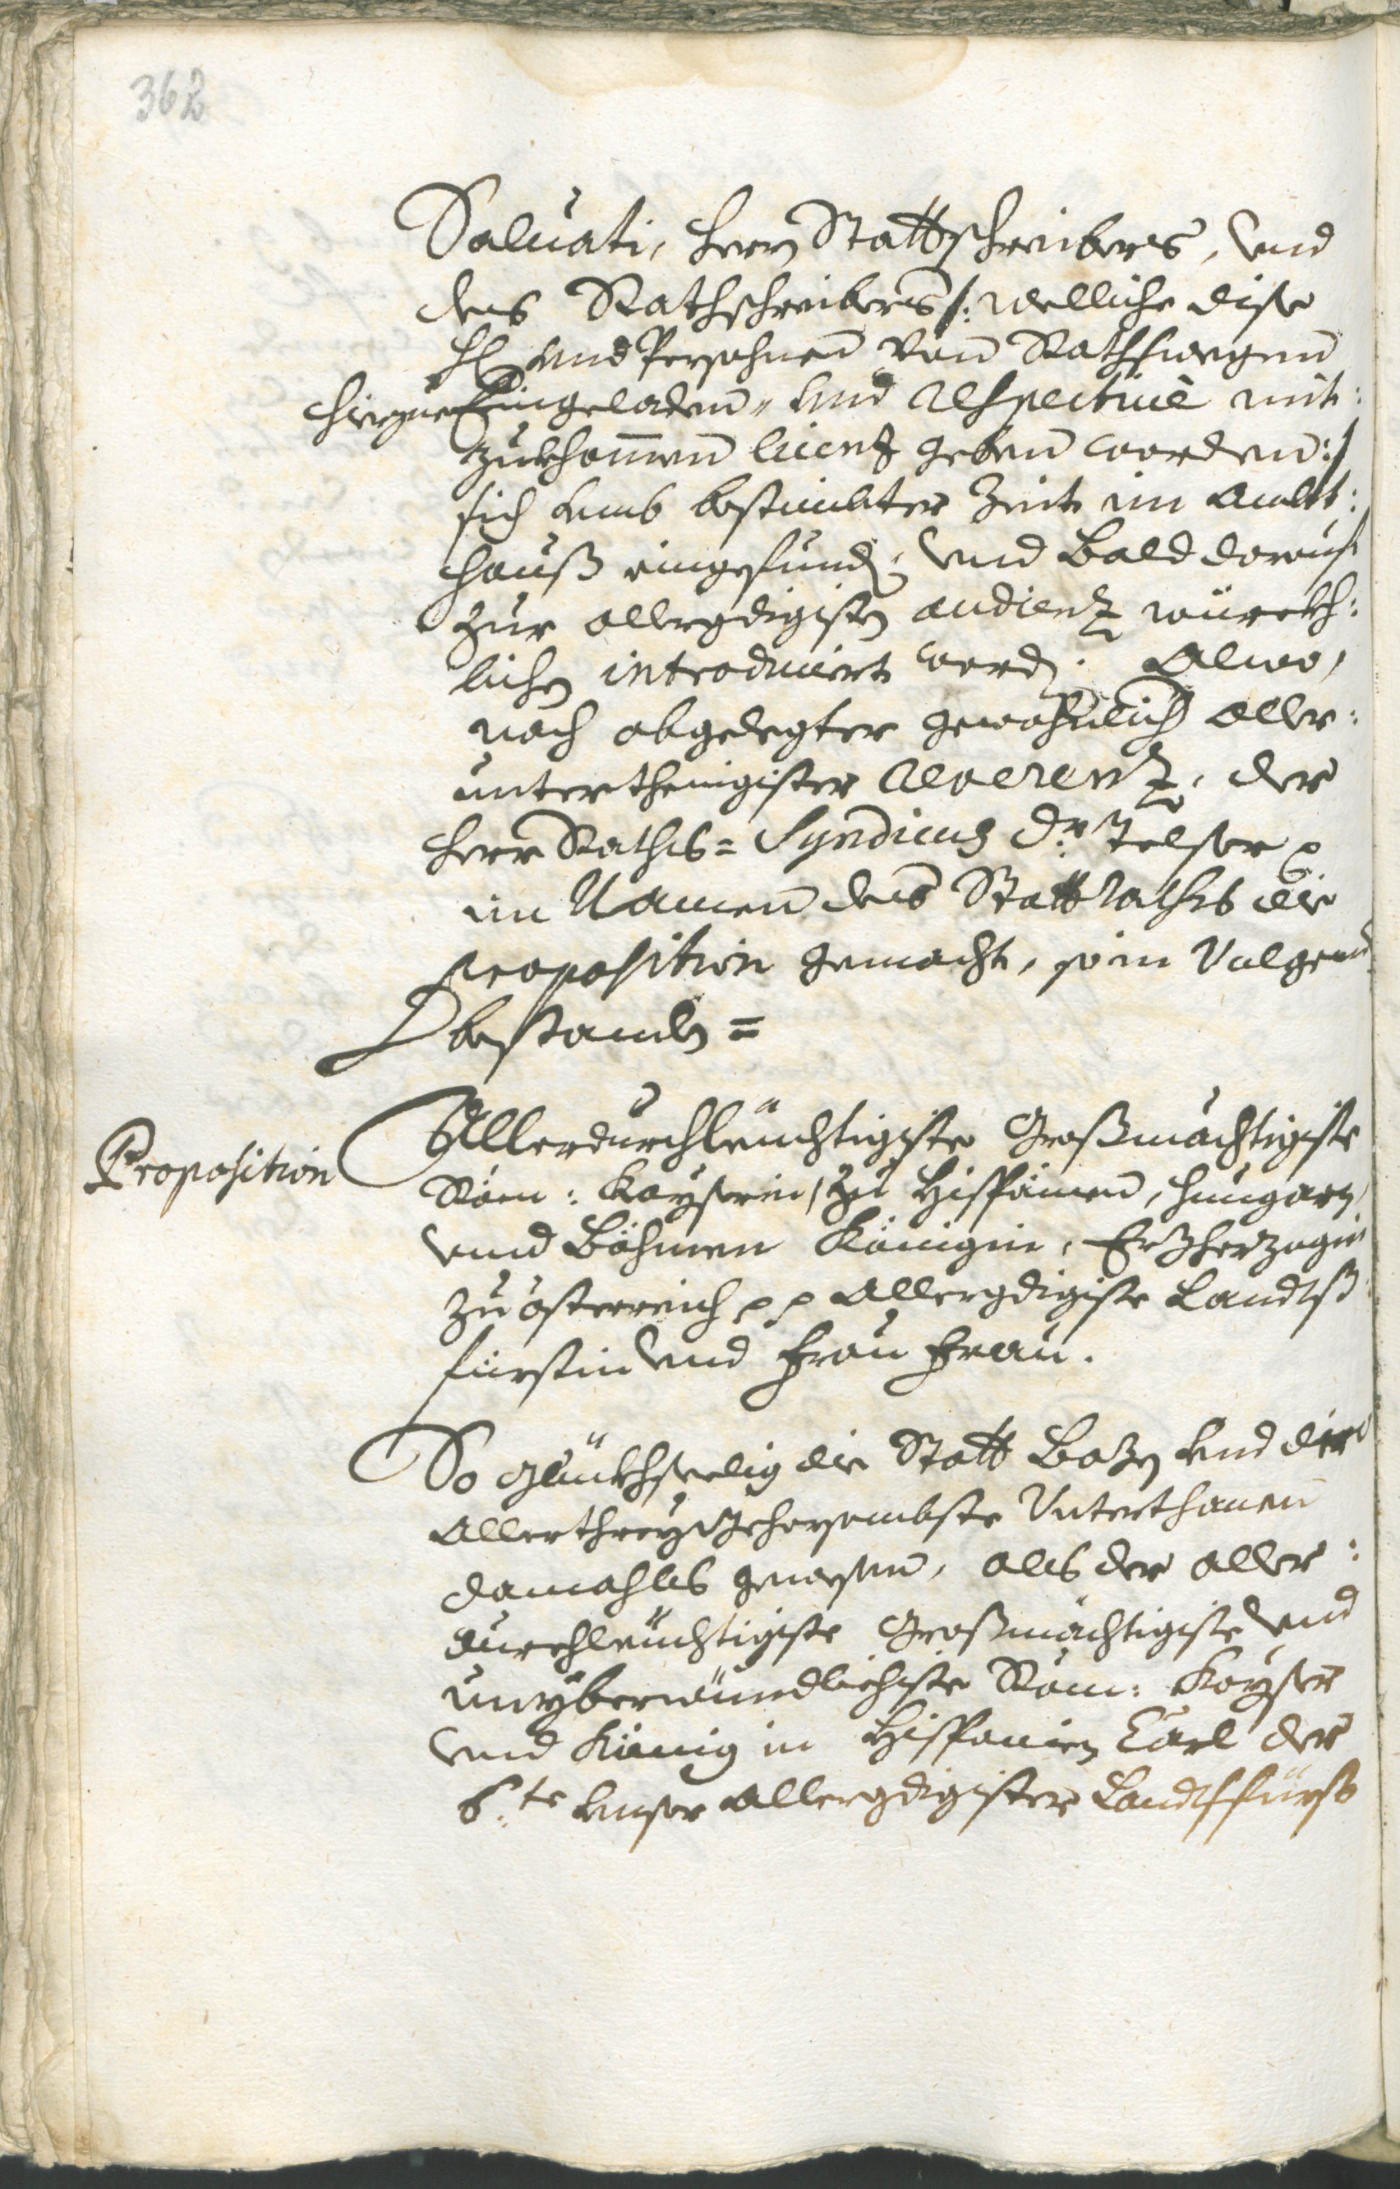 362
Saluati, herrn Stattschreibers, vnd
dens Rathschreibers /: welliche dise
H: vnd Persohnen von Rathswegen
hierzue Eingeladen, vnd respectiuè mit:
zukhommen licenz geben worden :/
sich umb bestimbter Zeit im Ambt:
hauß eingefundn, vnd bald darauf
zur allergdigisten audienz würckh:
lichen introduciert wordn. Alwo,
nach abgelegter gewohnlich aller:
unterthenigister Reverenz, der
herr Raths= Syndicus Dr: Telser p
im Namen dens Statt Raths die
Proposition gemacht, so in Volgend
bestanden =
Proposition
Allerdurchleüchtigiste Großmächtigiste
Röm: Kayserin, zu Hispanien, Hungarn,
vnd Böhmen Königin, Erzherzogin
zu össterreich p p Allergdigiste Landts:
fürstin vnd Frau Frau.
So glückhseelig die Statt Bozen vnd dero
Allerthreü Gehorsambste Vnterthanen
damahls gewesen, als der aller:
durchleüchtigiste Großmächtigiste vnd
unyberwündlichiste Röm: Kayser
vnd König in Hispanien Carl der
6:te vnser Allergdigister Landtsfürst